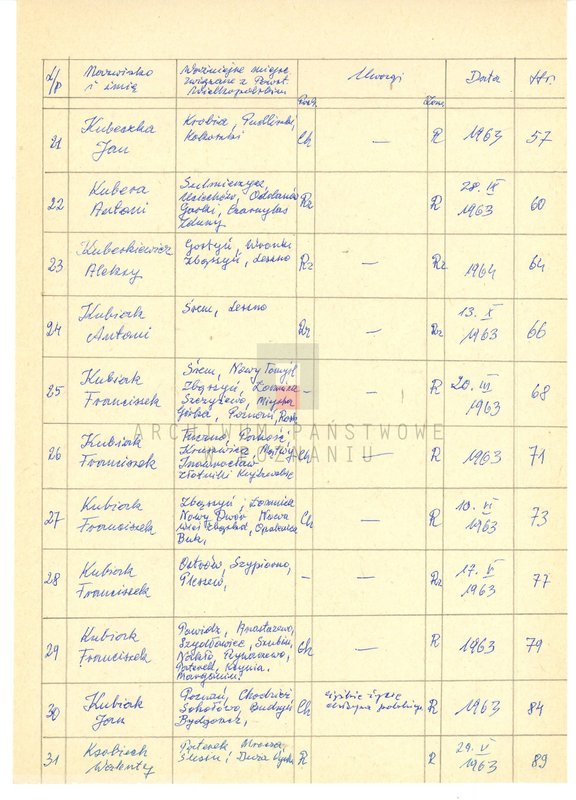 L/p Nazwisko i imię Ważniejsze miejsc. związane z Powst. Wielkopolskim Uwagi Data Nr.
21 Kubeszka Jan Krobia, Pudliszki, Ch — R 1963 57
22 Kubera Antoni Sulmierzyce, Odolanów Gorki, Czarnylas Zduny Rz R 28. IX 1963 60
23 Kuberkiewicz Aleksy Gostyń, Wronki Zbąszyń, Leszno Rz — Rz 1964 64
24 Kubiak Antoni Śrem, Leszno Rz — Rz 13. X 1963 66
25 Kubiak Franciszek Śrem, Nowy Tomyśl Zbąszyń, Łomnica Miejska Górka, Poznań, — — R 20. III 1963 68
ARCHIWUM PAŃSTWOWE
W POZNANIU
26 Kubiak Franciszek Pakość, Kruszwica, Mątwy Inowrocław Złotniki Kujawskie Ch — R 1963 71
27 Kubiak Franciszek Zbąszyń, Łomnica Nowy Dwór, Nowa wieś Zbąska, Opalenica Buk, Ch — R 10. VI 1963 73
28 Kubiak Franciszek Ostrów, Szypiorno, Pleszew, — — Rz 17. V 1963 77
29 Kubiak Franciszek Powidz, Anastazewo, Szydłowiec, Szubin, Nakło, Rynarzewo, Paterek, Kcynia, Margonin. Ch — R 1963 79
30 Kubiak Jan Poznań, Chodzież Sokołowo, Budzyń Bydgoszcz, Ch R 1963 84
31 Ksobiech Walenty Paterek, Mrocza, Ślesin, Duża R R 29. V 1963 89